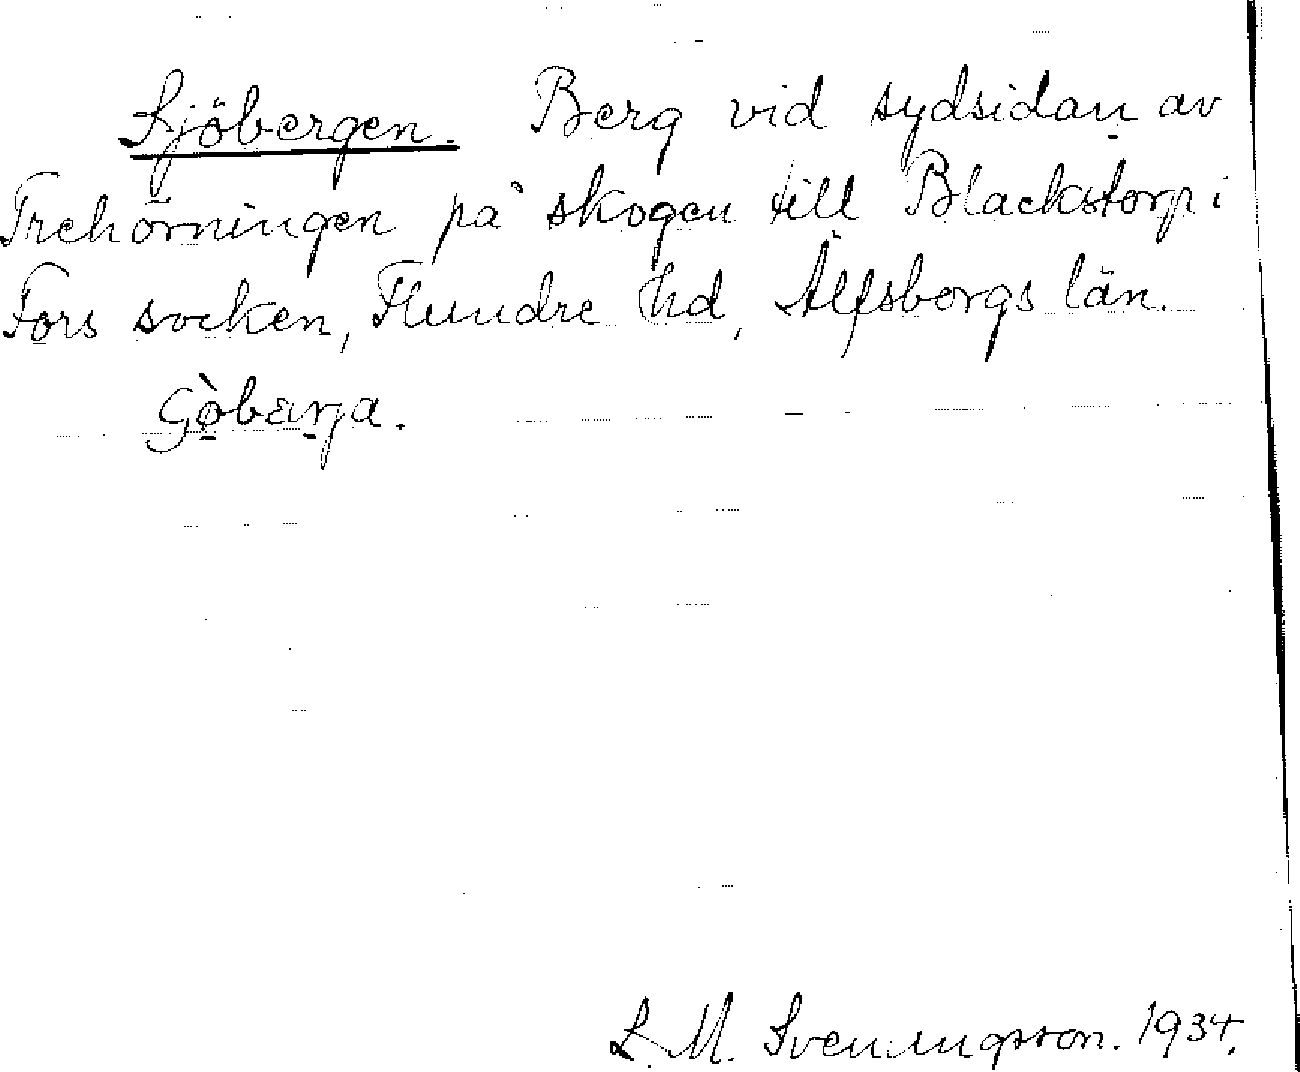 Sjöbergen. Berg vid sydsidan av
Trehörningen på skogen till Blackstorp i
Fors socken, Flundre hd, Älfsborgs län.
S. M. Svenningsson. 1934.